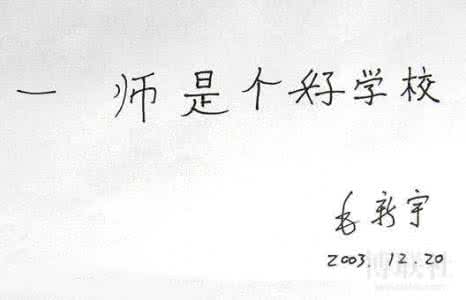 一 师是个好学校
毛新宇
2003.12.20
博联社